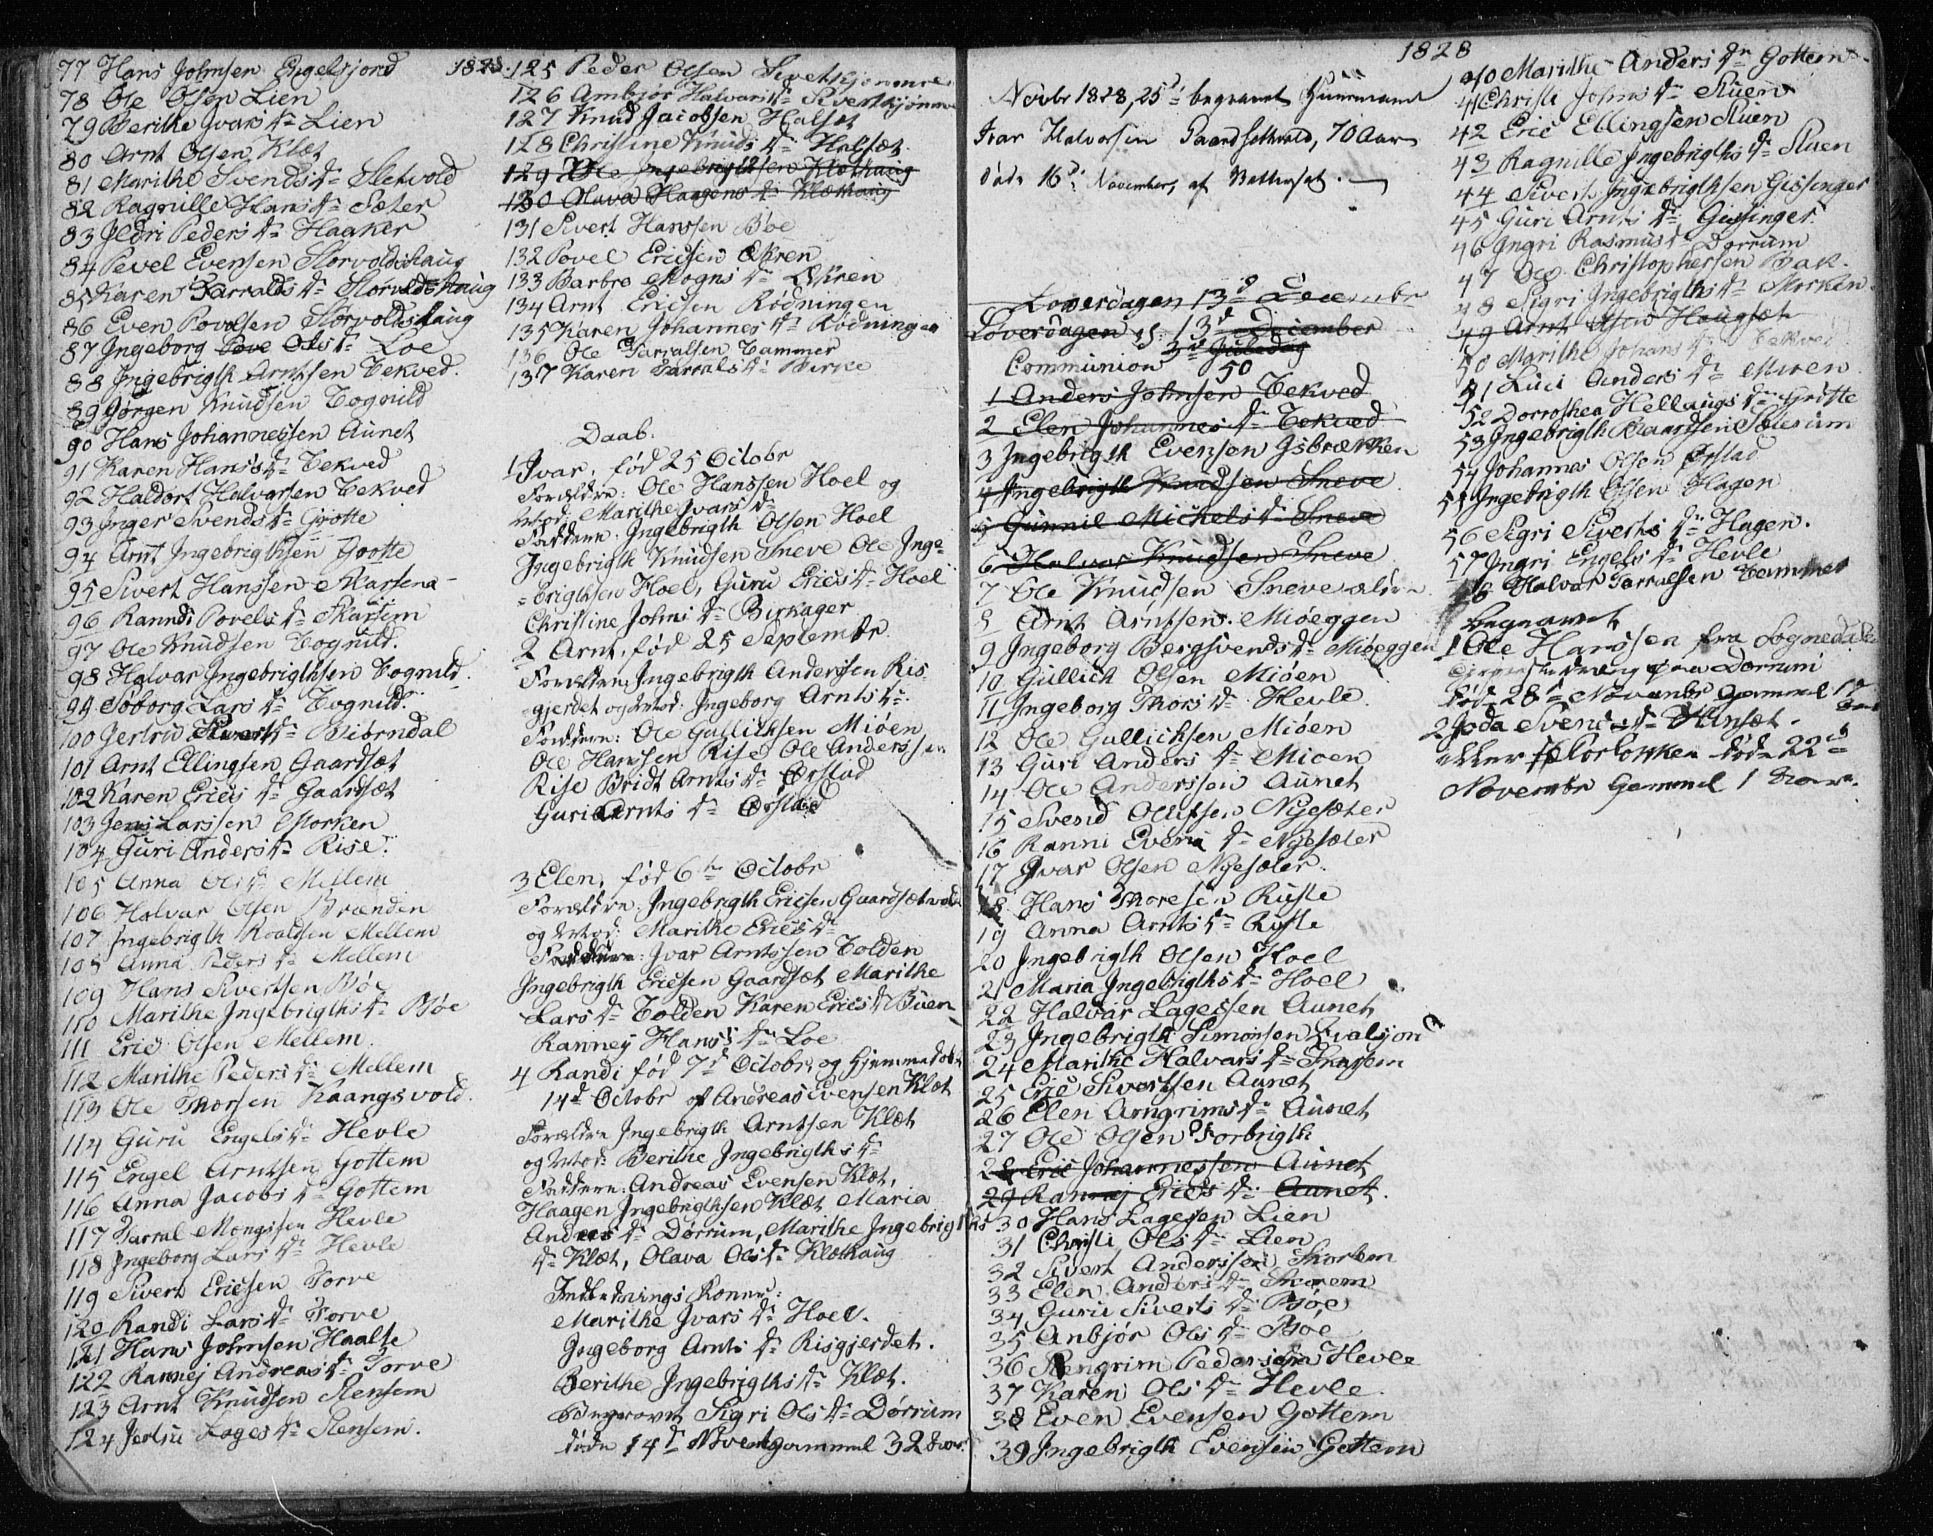 1828.
77 Hans Johnsen Engelsjord
78 Ole Olsen Lien
79 Berithe Ivars Dr Lien
80 Arnt Olsen Klæt
81 Marithe Svends Dr Sletvold
82 Ragnille Hans Dr Sæter
83 Ildri Peders Dr Haaker
84 Povel Evensen Storvoldshaug
85 Karen Tarralds Dr Storvoldshaug
86 Even Povelsen Storvoldshaug
87 Ingeborg Ols Dr Loe
88 Ingebrigth Arntsen Tekved.
89 Jørgen Knudsen Tognild
90 Hans Johannessen Aunet
91 Karen Hans Dr Tekved
92 Haldort Halvorsen Tekved
93 Inger Svends Dr Grøtte
94 Arnt Ingebrigthsen Grøtte
95 Sivert Hanssen
96 Rannei Povels Dr Skartem
97 Ole Knudsen Tognild.
98 Halvar Ingebrigthsen Tognild.
99 Søborg Lars Dr Tognild.
100 Gertru Siverts Dr Biörndal
101 Arnt Ellingsen Gaardsæt
102 Karen Erics Dr Gaardsæt
103 Jens Larssen Morken
104 Guri Anders Dr Rise.
105 Anna Ols Dr Mellem
106 Halvar Olsen Brænden
107 Ingebrigth Roaldsen Mellem
108 Anna Peders Dr Mellem
109 Hans Sivertsen Bøe
110 Marithe Ingebrigths Dr Bøe
111 Eric Olsen Mellem.
112 Marithe Peders Dr Mellem
113 Ole Thorsen Kaangsvold.
114 Guru Engels Dr Hevle
115 Engel Arntsen Gottem
116 Anna Jacobs Dr Gottem
117 Tarral Mongssen Hevle
118 Ingeborg Lars Dr Hevle
119 Sivert Ericsen Torve
120 Randi Lars Dr Torve
121 Hans Johnsen Haalte
122 Rannej Andreas Dr Torve
123 Arnt Knudsen Stensem
124 Loges Dr Stensem.
125 Peder Olsen Sivertskjønne
126 Ambjør Halvars Dr Sivertskjønne
127 Knud Jacobsen Halsæt
128 Christine Knuds Dr Halsæt.
129 Ole Ingebrigthsen Klæthaug
130 Olava Haagens Dr Klæthaug
131 Sivert Hanssen Bøe
132 Povel Ericsen Økren
133 Barbro Mogns Dr Økren
134 Arnt Ericsen Rødningen
135 Karen Johannes Dr Rødningen
136 Ole Tarralsen Tammer
137 Karen Tarrals Dr Birke
Daab.
1 Ivar, fød 25 Octobr
Forældre: Ole Hanssen Hoel og
Mod: Marithe Ivars Dr
Faddere: Ingebrigth Olsen Hoel
Ingebrigth Knudsen Sneve Ole Inge-
-brigthsen Hoel, Guru Erics Dr Hoel
Christine Johns Dr Birkager
2 Arnt, fød 25 September
Forældre: Ingebrigth Anderssen Ris-
gjerdet og Mod: Ingeborg Arnts Dr
Faddere: Ole Gullichsen Miøen
Ole Hanssen Rise Ole Anderssen
Rise Bridt Arnts Dr Ørstad
Guri Arnts Dr Ørstad
3 Elen, fød 6te Octobr
Forældre: Ingebrigth Ericsen Gaardsætvold
og Mod: Marithe Erics Dr
Faddere: Ivar Arntssen Tolden
Ingebrigth Ericsen Gaardsæt Marithe
Lars Dr Tolden Karen Erics Dr Buen
Rannej Hans Dr Loe
4 Randi fød 7d Octobr, og hjemmedøbt
14d Octobr af Andreas Evensen Klæt
Forældre Ingebrigth Arntsen Klæt
og Mod: Berithe Ingebrigths Dr
Faddere: Andreas Evensen Klæt,
Haagen Ingebrigthsen Klæt Maria
Andreas Dr Dørrum, Marithe Ingebrigths
Dr Klæt, Olava Ols Dr Klæthaug
Indlednings Koner:
Marithe Ivars Dr Hoel.
Ingeborg Arnts Dr Risgjerdet.
Berithe Ingebrigths Dr Klæt.
Begravet Sigri Ols Dr Dørrum
døde 14d Novembr gammel 32 Aar.
1828
Novbr 1828, 25d begravet Huusmand
Ivar Halvorsen Gaardsetvold, 70 Aar
døde 16d November, af
Løverdagen 13d December
Løverdagen d: 13d December
3d Juledag
Communion 50
1 Anders Johnsen Tekved
2 Elen Johannes Dr Tekved
3 Ingebrigth Evensen Isbrækken
4 Ingebrigth Knudsen Sneve
5 Gunnil Michels Dr Sneve
6 Halvar Knudsen Sneve
7 Ole Knudsen Sneve
8 Arnt Arntsen Miøeggen
9 Ingeborg Bergsvends Dr Miøeggen
10 Gullich Olsen Miøen
11 Ingeborg Thors Dr Hevle
12 Ole Gullichsen Miøen
13 Guri Anders Dr Miøen
14 Ole Anderssen Aunet
15 Svend Olufsen Nysæter
16 Ranni Evens Dr Nyesæter
17 Ivar Olsen Nyesæter.
18 Hans Thoresen Ryste
19 Anna Arnts Dr Ryste
20 Ingebrigth Olsen Hoel
21 Maria Ingebrigths Dr Hoel
22 Halvar Lagessen Aunet
23 Ingebrigth Simonsen
24 Marithe Halvars Dr
25 Eric Sivertsen Aunet
26 Elen Arngrims Dr Aunet
27 Ole Olsen Torbrigth
28 Eric Johannessen Aunet
29 Rannej Erics Dr Aunet.
30 Hans Lagesen Lien
31 Christi Ols Dr Lien
32 Sivert Anderssen Skortem
33 Elen Anders Dr Skorem
34 Guru Siverts Dr Bøe
35 Anbjør Ols Dr Bøe
36 Stengrim Pedersen Hevle
37 Karen Ols Dr Hevle.
38 Even Evensen Gottem
39 Ingebrigth Evensen Gottem
40 Marithe Anders Dr Gottem.
41 Christi Johns Dr Stuen
42 Eric Ellingsen Stuen
43 Ragnille Ingebrigths Dr Stuen
44 Sivert Ingebrigthsen Gissinger
45 Guri Arnts Dr Gissinger
46 Ingri Rasmus Dr Dorrum
47 Ole Christophersen Bak.
48 Sigri Ingebrigths Dr Morken
49 Arnt Olsen Haugsæt
50 Marithe Johans Dr Tekved
51 Luci Anders Dr Moren
52 Dorrothea Hellaugs Dr Grøtte
53 Ingebrigth Baardsen Solesum
54 Johannes Olsen Ørstad
55 Ingebrigth Olsen Hagen
56 Sigri Siverts Dr Hagen.
57 Ingri Engels Dr Hevle
58 Halvar Tarralsen Tammer
Begravet
1 Ole Hanssen fra Sognedalen
Dorrum
død 28d Novembr gammel 17
2 Svends Dr
døde 22d
Novembr Gammel 1 Aar.